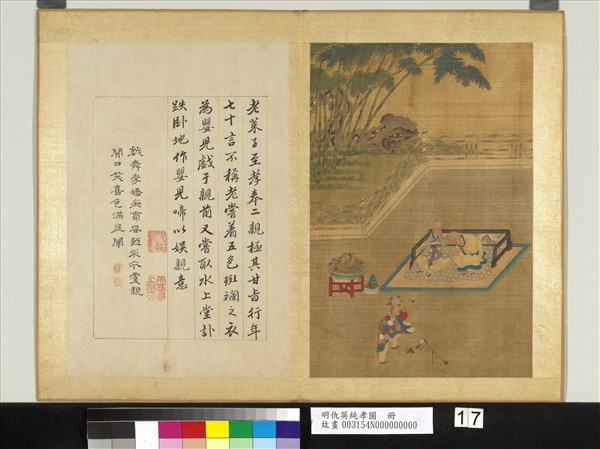 老萊子至孝奉二親極其甘旨行年
七十言不稱老嘗着五色斑斕之衣
為嬰兒戲于親前又嘗取水上堂詐
跌卧地作嬰兒啼以娛親意
戲舞學嬌癡春風動綵衣雙親
開口笑喜色滿庭闈
明仇英純孝圖 冊
故畫 003154N000000000
17